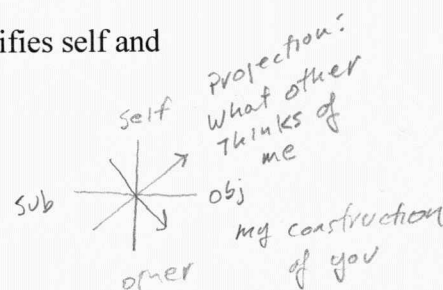 ifies self and
Projection:
What other
Thinks of
me
self
sub
obj
my construction
of you
other